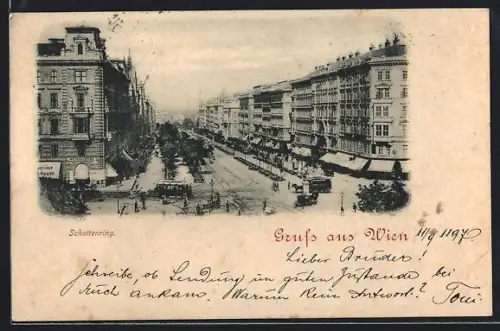 Schottenring.
Gruß aus Wien
Lieber Bruder!
Schreibe, ob Sendung in guten Zustande bei
Euch ankam. Warum keine Antwort? Toni